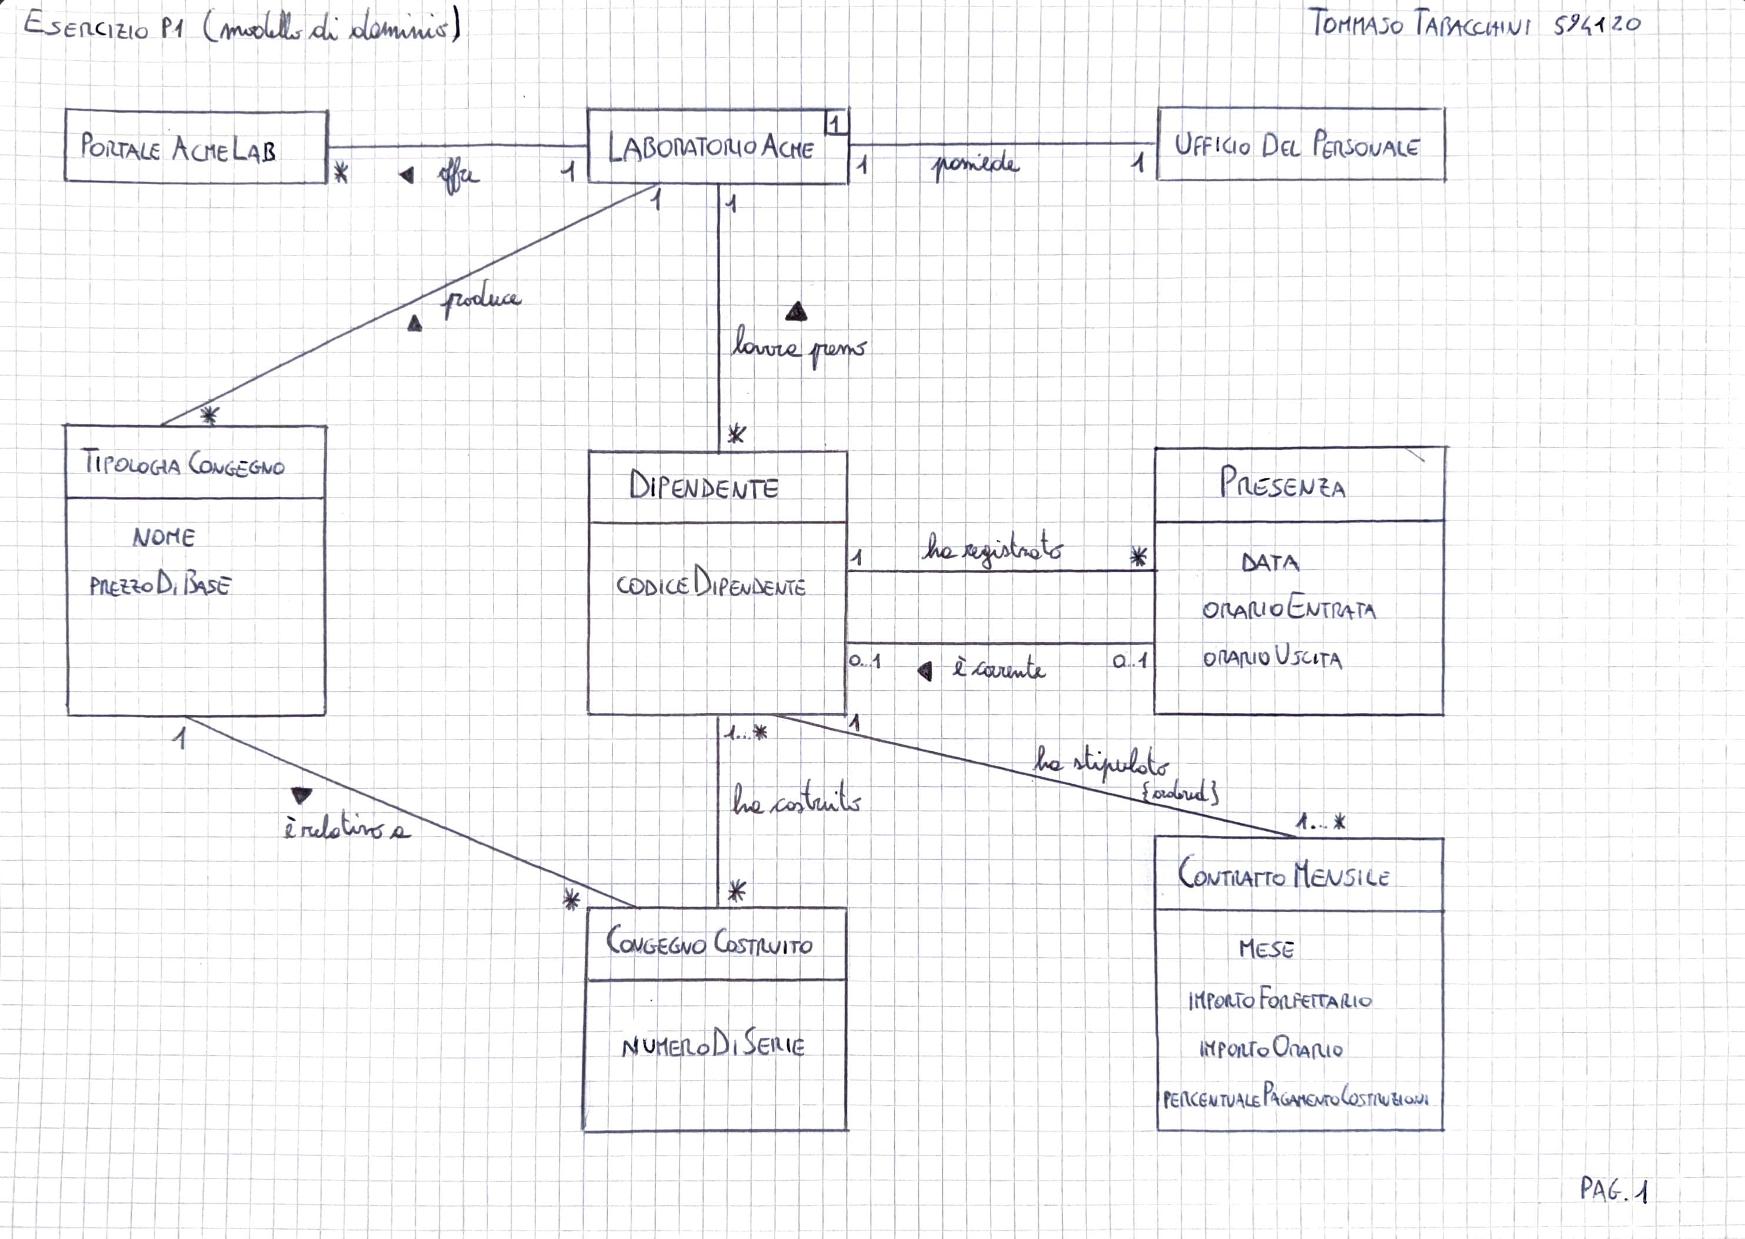 ESERCIZIO P1 (modello di dominio)
TOMMASO TABACCHINI 594120
PORTALE ACMELAB
* ◄ offre 1
LABORATORIO ACME
1
1 possiede 1
UFFICIO DEL PERSONALE
1
1
▲ produce
*
▲
lavora presso
*
TIPOLOGIA CONGEGNO
NOME
PREZZODIBASE
DIPENDENTE
CODICEDIPENDENTE
1 ha registrato *
0..1 ◄ è corrente 0..1
PRESENZA
DATA
ORARIOENTRATA
ORARIOUSCITA
1
▼
è relativo a
*
1...*
ha costruito
*
1
ha stipulato
{ordered}
1...*
CONGEGNO COSTRUITO
NUMERODISERIE
CONTRATTO MENSILE
MESE
IMPORTOFORFETTARIO
IMPORTOORARIO
PERCENTUALEPAGAMENTOCOSTRUZIONI
PAG. 1